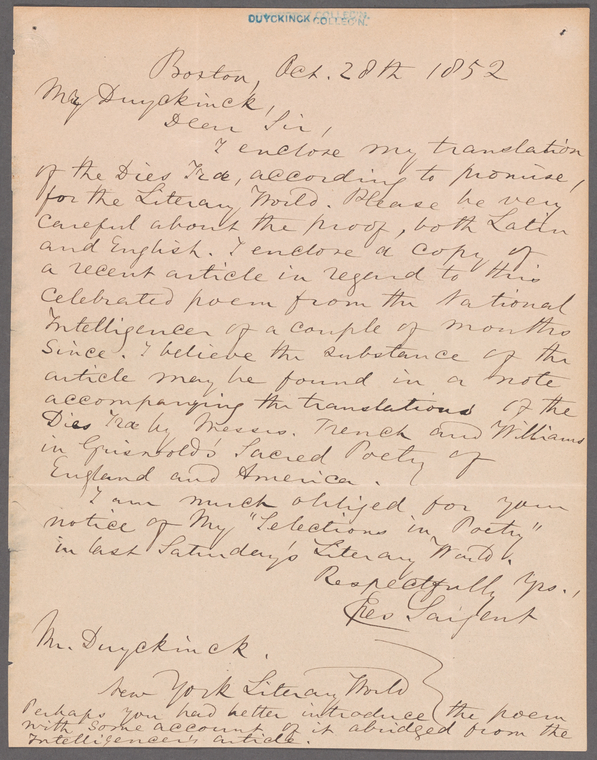 DUYCKINCK COLLEC'N.
Boston, Oct. 28th 1852
My Duyckinck,
Dear Sir,
I enclose my translation
of the Dies Irae, according to promise,
for the Literary World. Please be very
careful about the proof, both Latin
and English. I enclose a copy of
a recent article in regard to this
celebrated poem from the National
Intelligencer of a couple of months
since. I believe the substance of the
article may be found in a note
accompanying the translations of the
Dies Irae by Messrs. Trench and Williams
in Griswold's Sacred Poetry of
England and America.
I am much obliged for your
notice of my "Selections in Poetry"
in last Saturday's Literary World.
Respectfully Yrs.,
Epes Sargent
Mr. Duyckinck.
New York Literary World
Perhaps you had better introduce the poem
with some account of it abridged from the
Intelligencer's article.